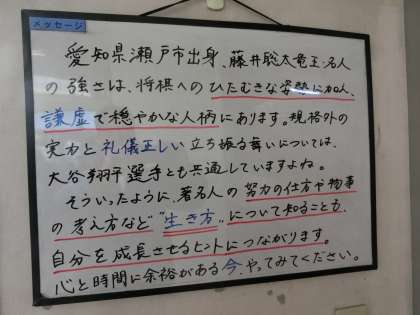 メッセージ
愛知県瀬戸市出身、藤井聡太竜王・名人
の強さは、将棋へのひたむきな姿勢に加え、
謙虚で穏やかな人柄にあります。規格外の
実力と礼儀正しい立ち振る舞いについては、
大谷翔平選手とも共通していますよね。
そういったように、著名人の努力の仕方や物事
の考え方など"生き方"について知ることも、
自分を成長させるヒントにつながります。
心と時間に余裕がある今、やってみてください。